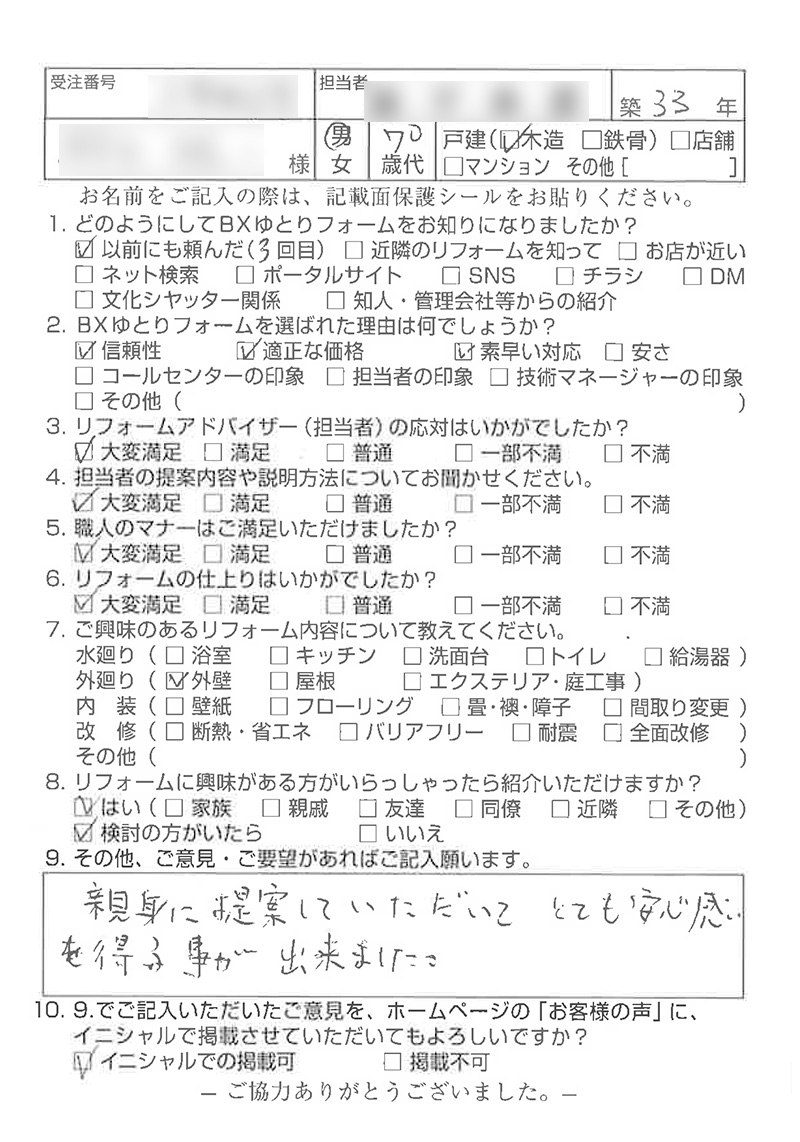 受注番号 担当者 築 33 年
様 男 女 70 歳代 戸建(☑木造 □鉄骨) □店舗
□マンション その他 [ ]
お名前をご記入の際は、記載面保護シールをお貼りください。
1. どのようにしてBXゆとりフォームをお知りになりましたか？
☑ 以前にも頼んだ(3回目) □ 近隣のリフォームを知って □ お店が近い
□ ネット検索 □ ポータルサイト □ SNS □ チラシ □ DM
□ 文化シヤッター関係 □ 知人・管理会社等からの紹介
2. BXゆとりフォームを選ばれた理由は何でしょうか？
☑ 信頼性 ☑ 適正な価格 ☑ 素早い対応 □ 安さ
□ コールセンターの印象 □ 担当者の印象 □ 技術マネージャーの印象
□ その他 ( )
3. リフォームアドバイザー(担当者)の応対はいかがでしたか？
☑ 大変満足 □ 満足 □ 普通 □ 一部不満 □ 不満
4. 担当者の提案内容や説明方法についてお聞かせください。
☑ 大変満足 □ 満足 □ 普通 □ 一部不満 □ 不満
5. 職人のマナーはご満足いただけましたか？
☑ 大変満足 □ 満足 □ 普通 □ 一部不満 □ 不満
6. リフォームの仕上りはいかがでしたか？
☑ 大変満足 □ 満足 □ 普通 □ 一部不満 □ 不満
7. ご興味のあるリフォーム内容について教えてください。
水廻り ( □ 浴室 □ キッチン □ 洗面台 □トイレ □ 給湯器 )
外廻り ( ☑ 外壁 □ 屋根 □ エクステリア・庭工事 )
内 装 ( □ 壁紙 □ フローリング □ 畳・襖・障子 □ 間取り変更 )
改 修 ( □ 断熱・省エネ □ バリアフリー □ 耐震 □ 全面改修 )
その他 ( )
8. リフォームに興味がある方がいらっしゃったら紹介いただけますか？
☑ はい ( □ 家族 □ 親戚 □ 友達 □ 同僚 □ 近隣 □ その他)
☑ 検討の方がいたら □ いいえ
9. その他、ご意見・ご要望があればご記入願います。
親身に提案していただいて とても安心感
を得る事が 出来ました。
10. 9.でご記入いただいたご意見を、ホームページの「お客様の声」に、
イニシャルで掲載させていただいてもよろしいですか？
☑ イニシャルでの掲載可 □ 掲載不可
― ご協力ありがとうございました。―